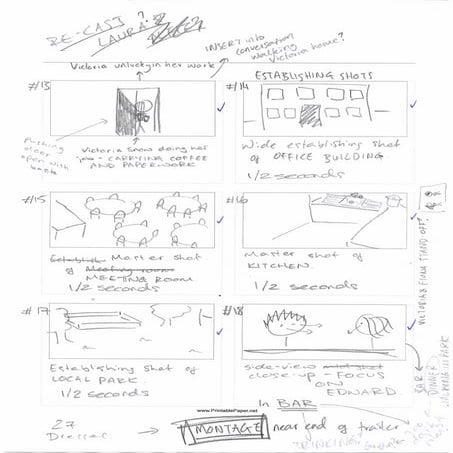 RE-CAST
LAURA?
INSERT into
conversation
walking
Victoria home?
Victoria unlucky in her work
ESTABLISHING SHOTS
#13
#14
Pushing
door
open with
Victoria Snow doing her
job - CARRYING COFFEE
AND PAPERWORK
Wide establishing shot
of OFFICE BUILDING
1/2 seconds
#15
#16
Establish Master shot
of Meeting room
MEETING ROOM
1/2 seconds
Master shot of
KITCHEN.
1/2 seconds
VICTORIA'S FINAL STAND OFF?
#17
#18
Establishing shot of
LOCAL PARK.
1/2 seconds
side-view
close-up - FOCUS
ON
EDWARD.
In BAR
BAR
DINNER
WALKING IN PARK
www.PrintablePaper.net
27
Dresses
MONTAGE near end of trailer
DRINKING